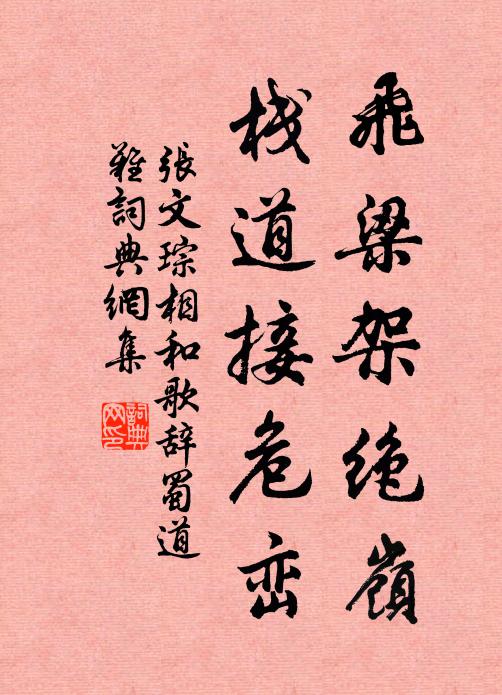 飛梁架绝嶺
栈道接危峦
張文琮相和歌辞蜀道
難詞典網集
詞典
网印